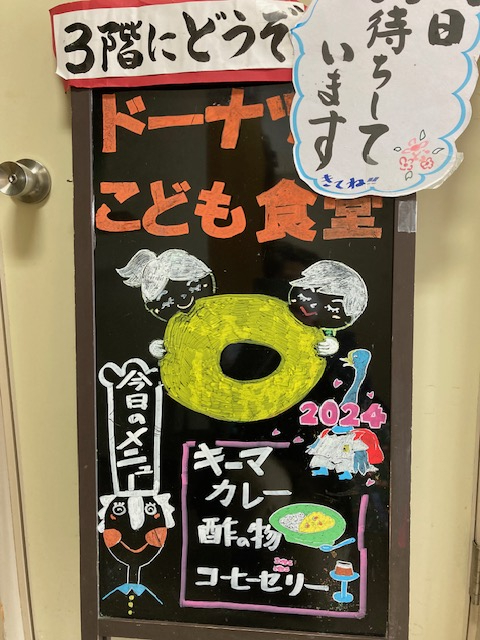 3階にどうぞ
日
待ちして
います
きてね!!
ドーナツ
こども食堂
今日のメニュー
2024
キーマ
カレー
酢の物
コーヒーゼリー